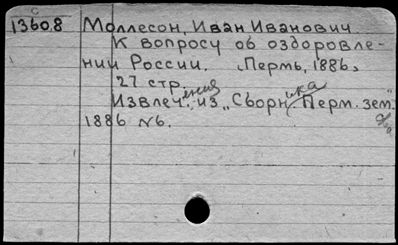 с
13608 Моллесон, Иван Иванович
К вопросу об оздоровле-
нии России. Пермь, 1886,
27 стр.
Извлечения из „Сборника Перм. зем."
1886 №6.